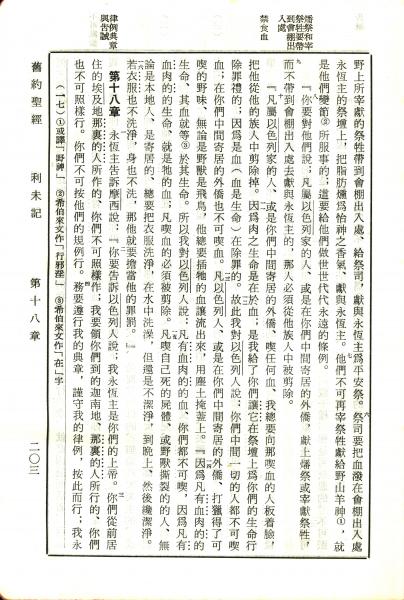 燔祭和宰
祭牲要帶
到會棚出
入處
禁食血
律例典章
與告誡
野上所宰獻的祭牲帶到會棚出入處、給祭司，獻與永恆主爲平安祭。祭司要把血潑在會棚出入處
永恆主的祭壇上，把脂肪燻爲怡神之香氣、獻與永恆主。他們不可再宰祭牲獻給野山羊神①，就
是他們變節②所服事的；這要給他們做世世代代永遠的條例。
『你要對他們說；凡屬以色列家的人、或是在你們中間寄居的外僑、獻上燔祭或宰獻祭牲，
而不帶到會棚出入處去獻與永恆主的，那人必須從他族人中被剪除。
『凡屬以色列家的人、或是你們中間寄居的外僑、喫任何血、我總要向那喫血的人板着臉，
把他從他的族人中剪除掉。因爲肉之生命是在於血；是我給了你們讓它在祭壇上爲你們的生命行
除罪禮的；因爲是血（血是生命）在除罪的。故此我對以色列人說；你們中間一切的人都不可喫
血；在你們中間寄居的外僑也不可喫血。凡以色列人、或是在你們中間寄居的外僑、打獵得了可
喫的野味、無論是野獸是飛鳥，他總要插牠的血讓流出來，用塵土掩蓋上。『因爲凡有血肉的的
生命、其血就等③於其生命。所以我對以色列人說；凡有血肉的的血、你們都不可喫，因爲凡有
血肉的的生命、就是牠的血；凡喫血的必須被剪除。凡喫自己死的屍體、或野獸撕裂的的人、無
論是本地人、是寄居的、總要把衣服洗淨，在水中洗澡，但還是不潔淨，到晚上、然後纔潔淨。
若衣服也不洗淨，身也不洗，那他就要擔當他的罪罰。』
第十八章　永恆主告訴摩西說；『你要告訴以色列人說；我永恆主是你們的上帝。你們從前居
住的埃及地那裏的人所作的、你們不可照樣作；我要領你們到的迦南地、那裏的人所行的、你們
也不可照樣行。你們不可按他們的規例行。務要遵行我的典章，謹守我的律例，按此而行；我永
（一七）①或譯「野神」　②希伯來文作「行邪淫」　③希伯來文作「在」字
舊約聖經　利未記　第十八章　二〇三